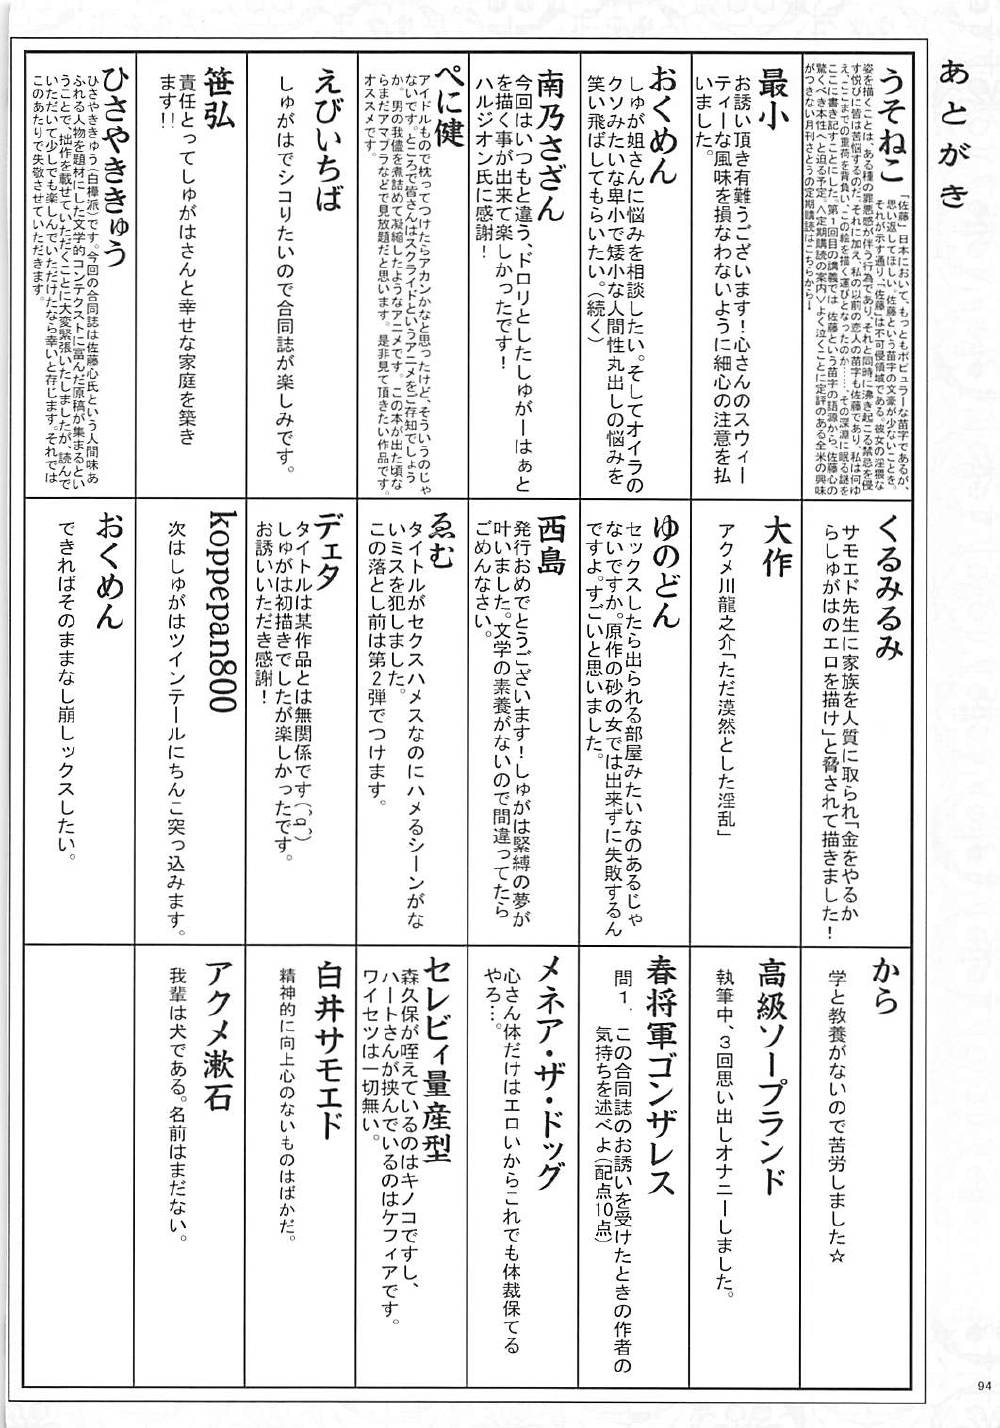 あとがき
うそねこ
「佐藤」日本において、もっともポピュラーな苗字であるが、
思い返してほしい。佐藤という苗字の文豪が少ないことを。
それが示す通り、「佐藤」は不可侵領域である。彼女の淫猥な
姿を描くことは、ある種の罪悪感が伴う行為であり、それと同時に沸き起こる禁忌を侵
す悦びに皆は苦悩するのだ。それに加え、私の以前の恋人の苗字も佐藤であり、私は何ゆ
え、ここまでの重荷を背負い、この絵を描く運びとなったのか……、その深淵に眠る謎を
ここに書き記すことにした。第1回目の講義では、佐藤という苗字の語源から、佐藤心の
驚くべき本性へと迫る予定。＜定期購読の案内＞よく泣くことに定評のある全米の興味
がつきない月刊さとうの定期購読はこちらから！
最小
お誘い頂き有難うございます！心さんのスウィー
ティーな風味を損なわないように細心の注意を払
いました。
おくめん
しゅが姐さんに悩みを相談したい。そしてオイラの
クソみたいな卑小で矮小な人間性丸出しの悩みを
笑い飛ばしてもらいたい。（続く）
南乃さざん
今回はいつもと違う、ドロリとしたしゅがーはぁと
を描く事が出来て楽しかったです！
ハルジオン氏に感謝！
ぺに健
アイドルもので枕ってつけたらアカンかなと思ったけど、そういうのじゃ
ないです。ところで皆さんはスクライドというアニメをご存知でしょう
か。男の我儘を煮詰めて凝縮したようなアニメです。この本が出た頃な
らまだアマプラなどで見放題だと思います。是非見て頂きたい作品です。
オススメです。
えびいちば
しゅがはでシコりたいので合同誌が楽しみです。
笹弘
責任とってしゅがはさんと幸せな家庭を築き
ます！！
ひさやききゅう
ひさやききゅう（白樺派）です。今回の合同誌は佐藤心氏という人間味あ
ふれる人物を題材にした文学的コンテクストに富んだ原稿が集まるとい
うことで、拙作を載せていただくことに大変緊張いたしましたが、読んで
いただいて少しでも楽しんでいただけたなら幸いと存じます。それでは
このあたりで失敬させていただきます。
くるみるみ
サモエド先生に家族を人質に取られ「金をやるか
らしゅがはのエロを描け」と脅されて描きました！
大作
アクメ川龍之介「ただ漠然とした淫乱」
ゆのどん
セックスしたら出られる部屋みたいなのあるじゃ
ないですか。原作の砂の女では出来ずに失敗するん
ですよ。すごいと思いました。
西島
発行おめでとうございます！しゅがは緊縛の夢が
叶いました。文学の素養がないので間違ってたら
ごめんなさい。
ゑむ
タイトルがセクスハメスなのにハメるシーンがな
いミスを犯しました。
この落とし前は第2弾でつけます。
デェタ
タイトルは某作品とは無関係です（'q'）
しゅがは初描きでしたが楽しかったです。
お誘いいただき感謝！
koppepan800
次はしゅがはツインテールにちんこ突っ込みます。
おくめん
できればそのままなし崩しックスしたい。
から
学と教養がないので苦労しました☆
高級ソープランド
執筆中、3回思い出しオナニーしました。
春将軍ゴンザレス
問1． この合同誌のお誘いを受けたときの作者の
気持ちを述べよ（配点10点）
メネア・ザ・ドッグ
心さん体だけはエロいからこれでも体裁保てる
やろ…。
セレビィ量産型
森久保が咥えているのはキノコですし、
ハートさんが挟んでいるのはケフィアです。
ワイセツは一切無い。
白井サモエド
精神的に向上心のないものはばかだ。
アクメ漱石
我輩は犬である。名前はまだない。
94